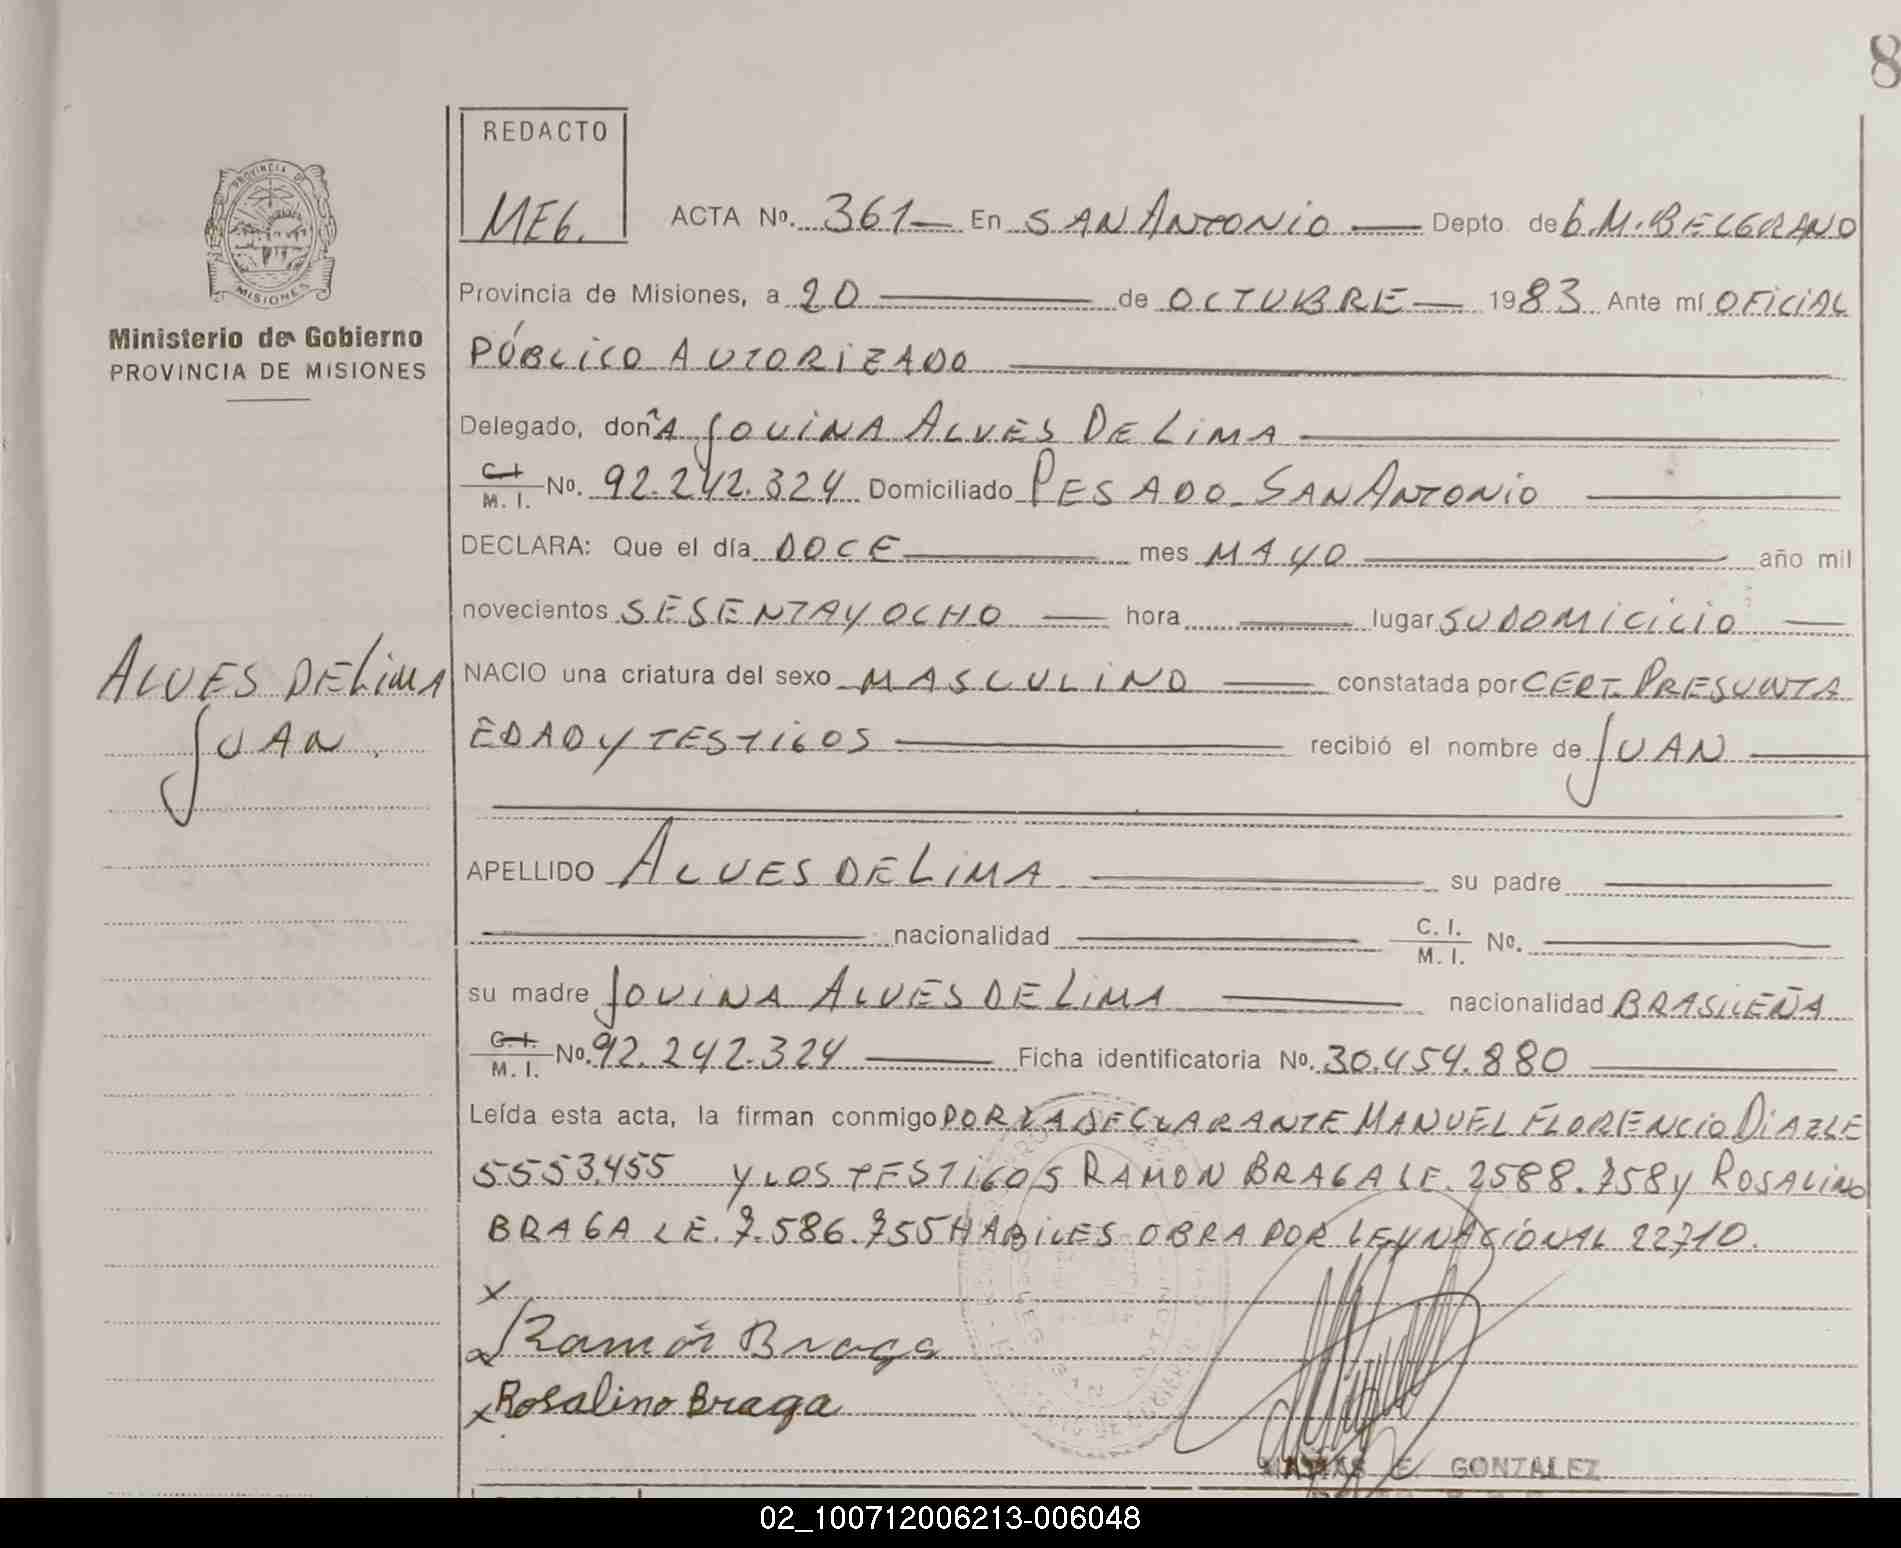 8
REDACTO
MEG.
PROVINCIA DE
MISIONES
Ministerio de Gobierno
PROVINCIA DE MISIONES
ACTA Nº. 361 En SAN ANTONIO Depto de G.M. BELGRANO
Provincia de Misiones, a 20 de OCTUBRE 1983 Ante mí OFICIAL
PÚBLICO AUTORIZADO
Delegado, doñA JOVINA ALVES DE LIMA
C.I. M. I. Nº. 92.242.324 Domiciliado PESADO SAN ANTONIO
DECLARA: Que el día DOCE mes MAYO año mil
novecientos SESENTA Y OCHO hora lugar SU DOMICILIO
ALVES DE LIMA
JUAN.
NACIO una criatura del sexo MASCULINO constatada por CERT. PRESUNTA
EDAD Y TESTIGOS recibió el nombre de JUAN
APELLIDO ALVES DE LIMA su padre
nacionalidad C. I. M. I. Nº.
su madre JOVINA ALVES DE LIMA nacionalidad BRASILEÑA
C.I. M. I. Nº. 92.242.324 Ficha identificatoria Nº. 30.454.880
Leída esta acta, la firman conmigo POR LA DECLARANTE MANUEL FLORENCIO DIAZ LE
5553.455 Y LOS TESTIGOS RAMON BRAGA LE. 2588.758 Y ROSALINO
BRAGA LE. 7.586.755 HABILES OBRA POR LEY NACIONAL 22710.
x
x Ramón Braga
x Rosalino Braga
MATIAS E. GONZALEZ
02_100712006213-006048